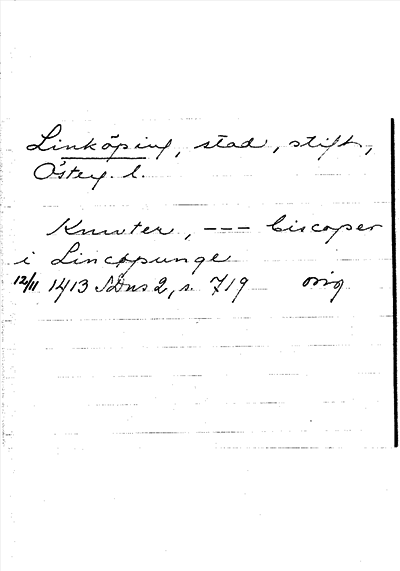 Linköping, stad, stift,
Österg. l.
Knuter, --- biscoper
i Lincøpunge
12/11 1413 SDns 2, s. 719 orig